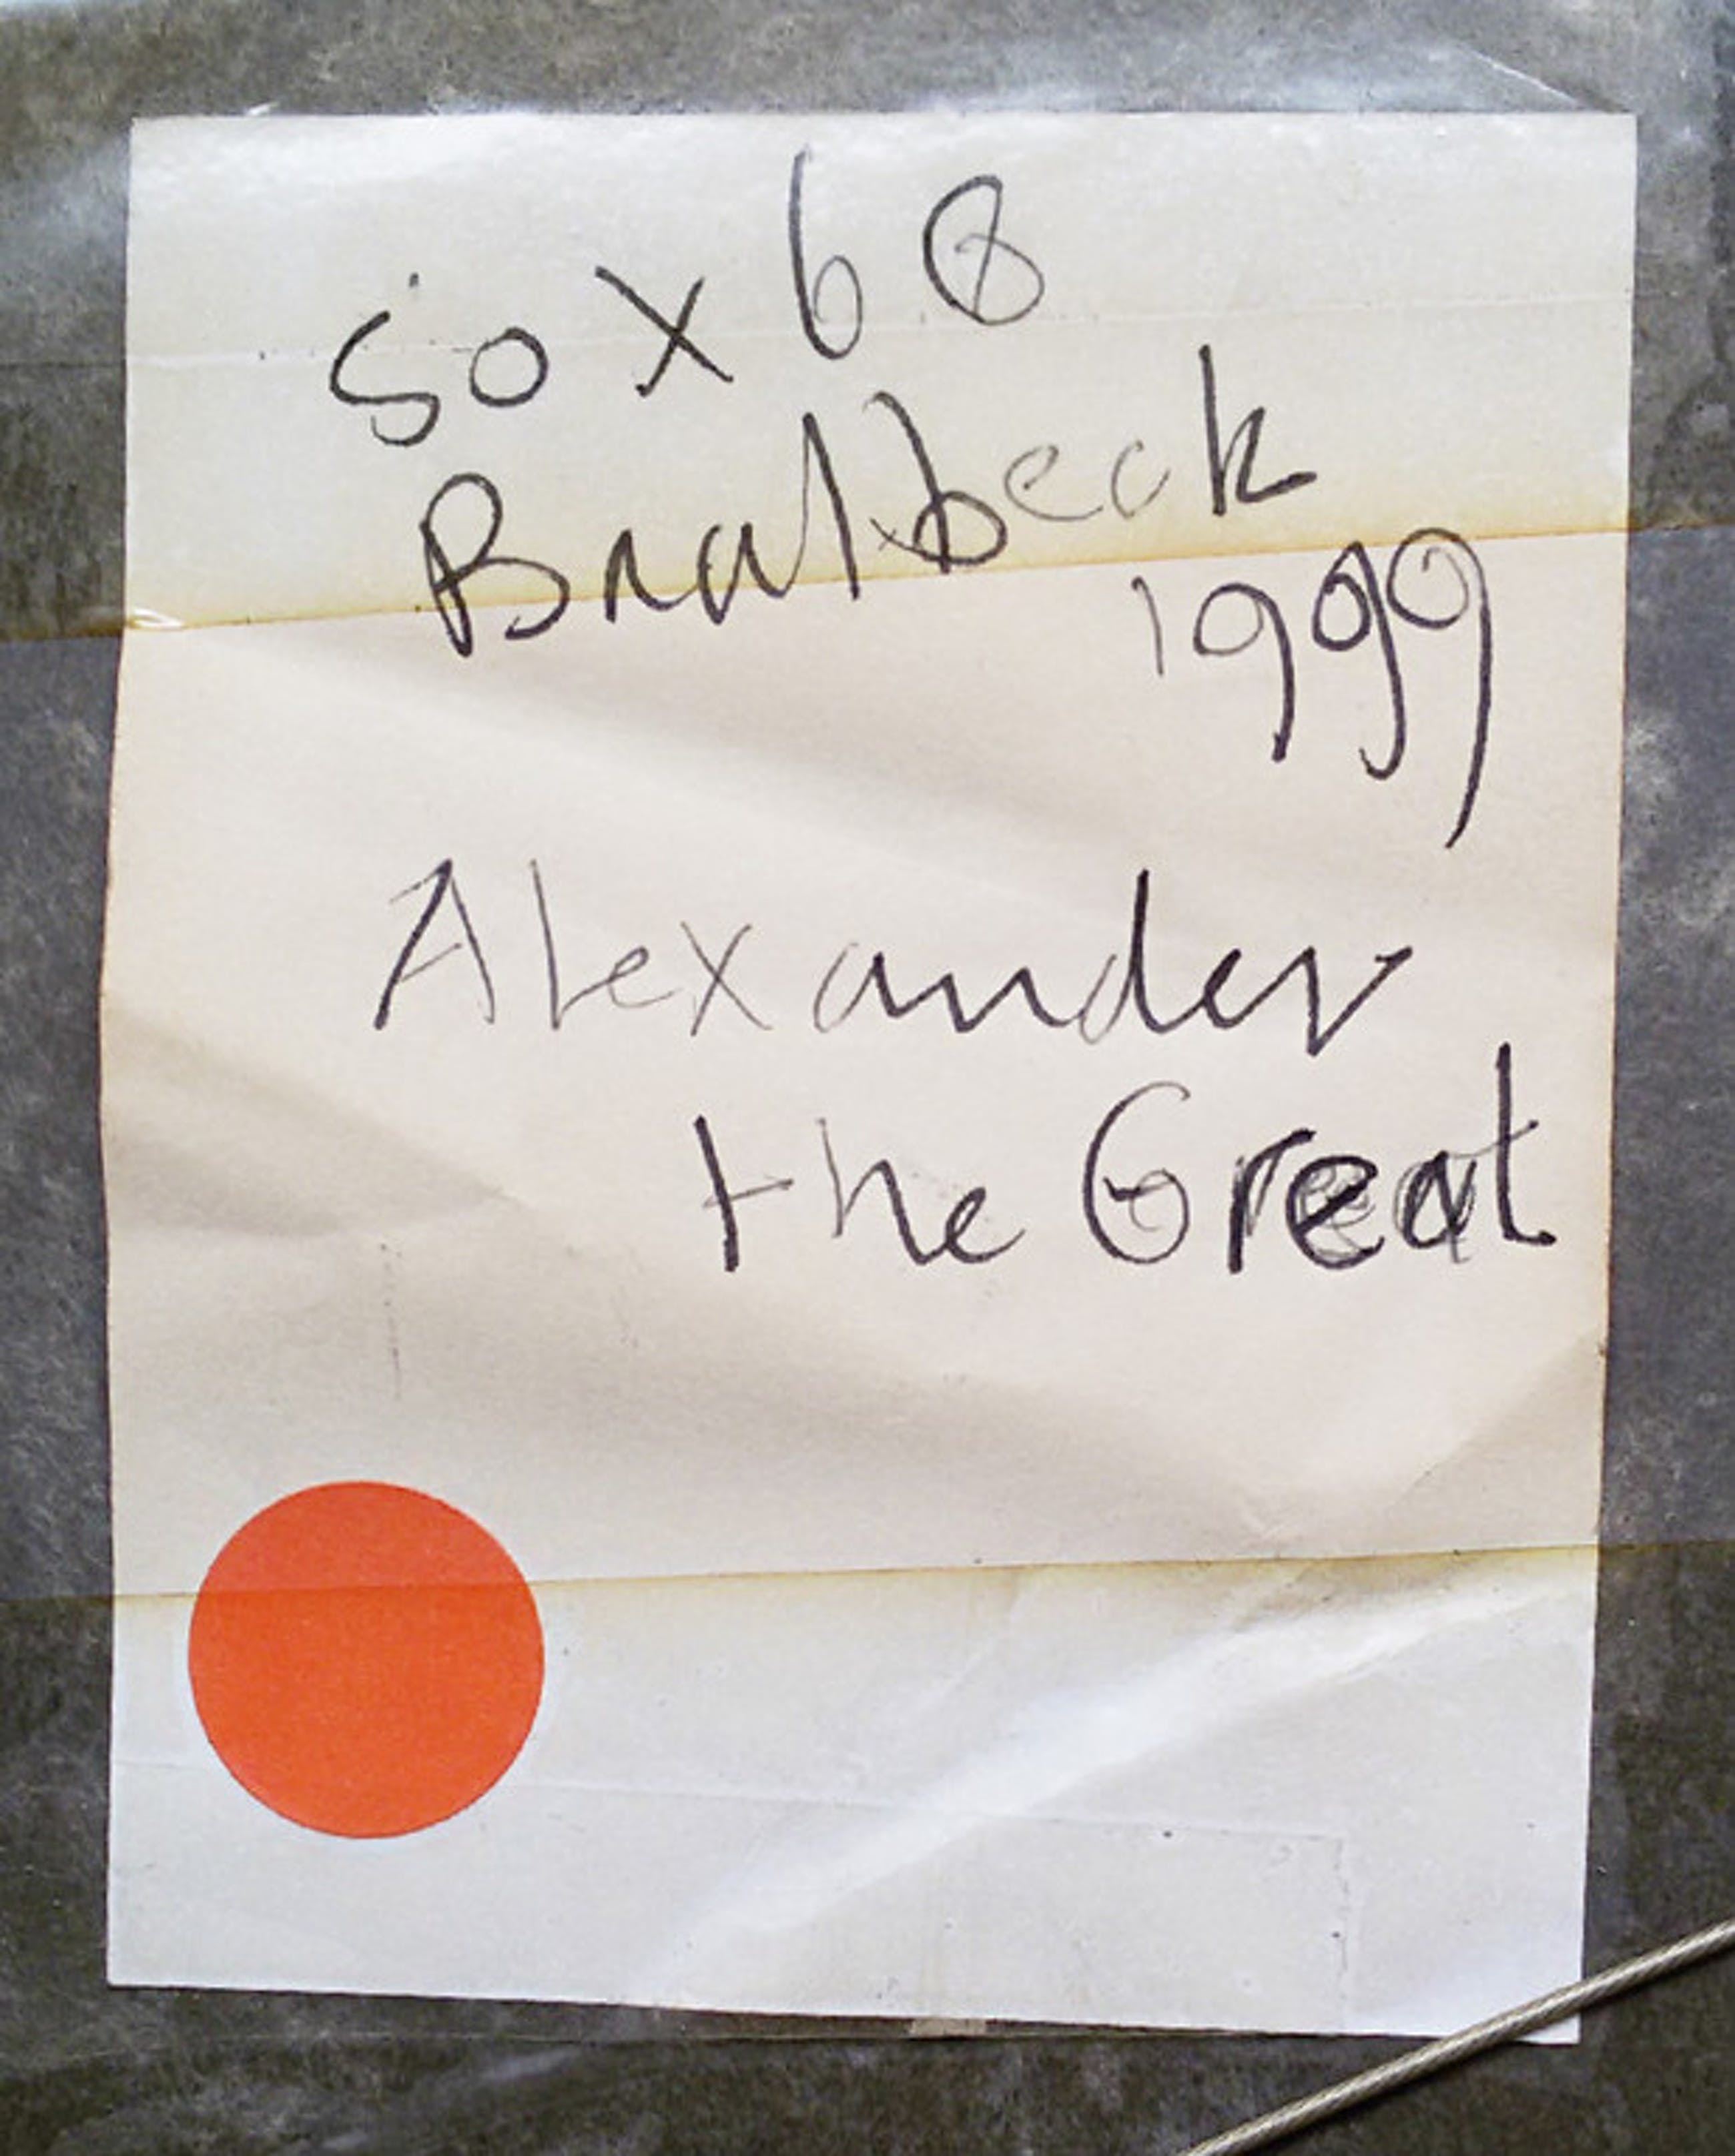 50 x 68
Bralbeck
1999
Alexander
the Great